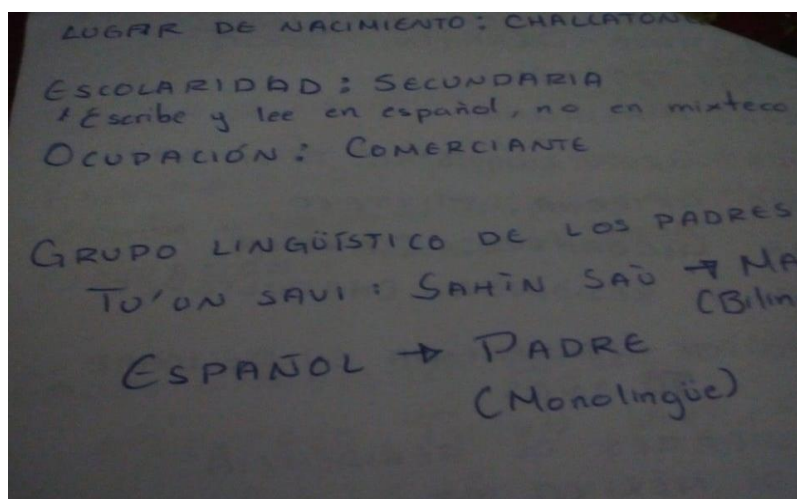 LUGAR DE NACIMIENTO: CHALCATON
ESCOLARIDAD: SECUNDARIA
* Escribe y lee en español, no en mixteco
OCUPACIÓN: COMERCIANTE
GRUPO LINGÜÍSTICO DE LOS PADRES
TU'UN SAVI: SAHÌN SAÙ → MA
(Bilin
ESPAÑOL → PADRE
(Monolingüe)